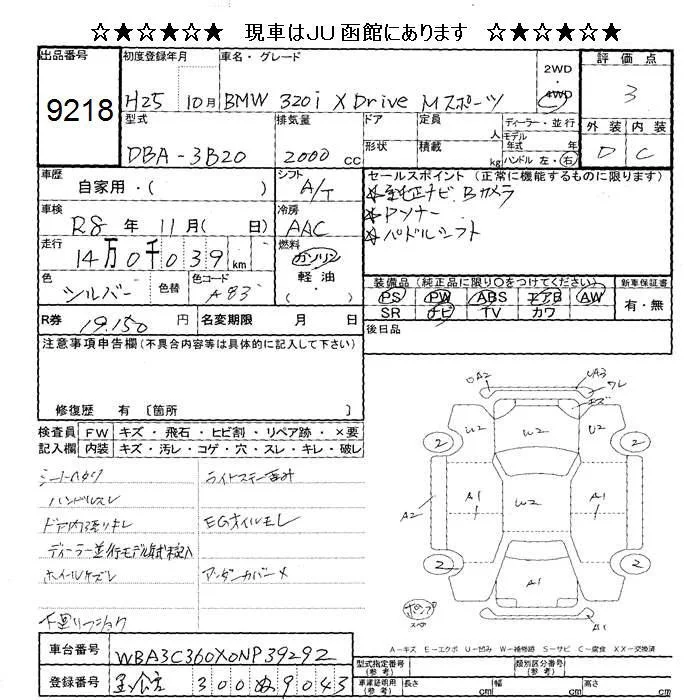 ☆★☆★☆★ 現車はJU函館にあります ☆★☆★☆★
出品番号
9218
初度登録年月
H25 10月
車名・グレード
BMW 320i X Drive Mスポーツ
2WD
4WD
評価点
3
外装 内装
D C
型式
DBA-3B20
排気量
2000 cc
ドア
形状
定員
人
積載
kg
ディーラー・並行
モデル
年式 年
ハンドル 左・右
車歴
自家用・( )
シフト
A/T
セールスポイント(正常に機能するものに限ります)
☆純正ナビ.Bカメラ
☆Pシナー
☆パドルシフト
車検
R8 年 11月( 日)
冷房
AAC
走行
14万0千039km
燃料
ガソリン
軽・油
・( )
色
シルバー
色替
色コード
A83
装備品(純正品に限り○をつけてください)
PS PW ABS エアB AW
SR ナビ TV カワ
新車保証書
有・無
R券
19.150 円
名変期限 月 日
後日品
注意事項申告欄(不具合内容等は具体的に記入して下さい)
修復歴 有〔箇所 〕
検査員
記入欄
FW キズ・飛石・ヒビ割・リペア跡・×要
内装 キズ・汚レ・コゲ・穴・スレ・キレ・破レ
シートヘタリ
ハンドルスレ
ドア内張リキレ
ディーラー並行モデル年式未記入
ホイールケズレ
下廻リフショク
ライトステー歪み
EGオイルモレ
アンダーカバー×
UA2
UA3
ワレ
キズ
2
U2
U2
U2
2
A2
A1
U2
A1
2
A1
2
A1
ポンプ
スペ
A-キズ E-エクボ U-凹み W-補修跡 S-サビ C-腐食 XX-交換済
車台番号
WBA3C360X0NP39292
登録番号
300 ぬ 9043
型式指定番号
(参考)
類別区分番号
(参考)
車庫証明用
(参考)
長さ cm
幅 cm
高さ cm